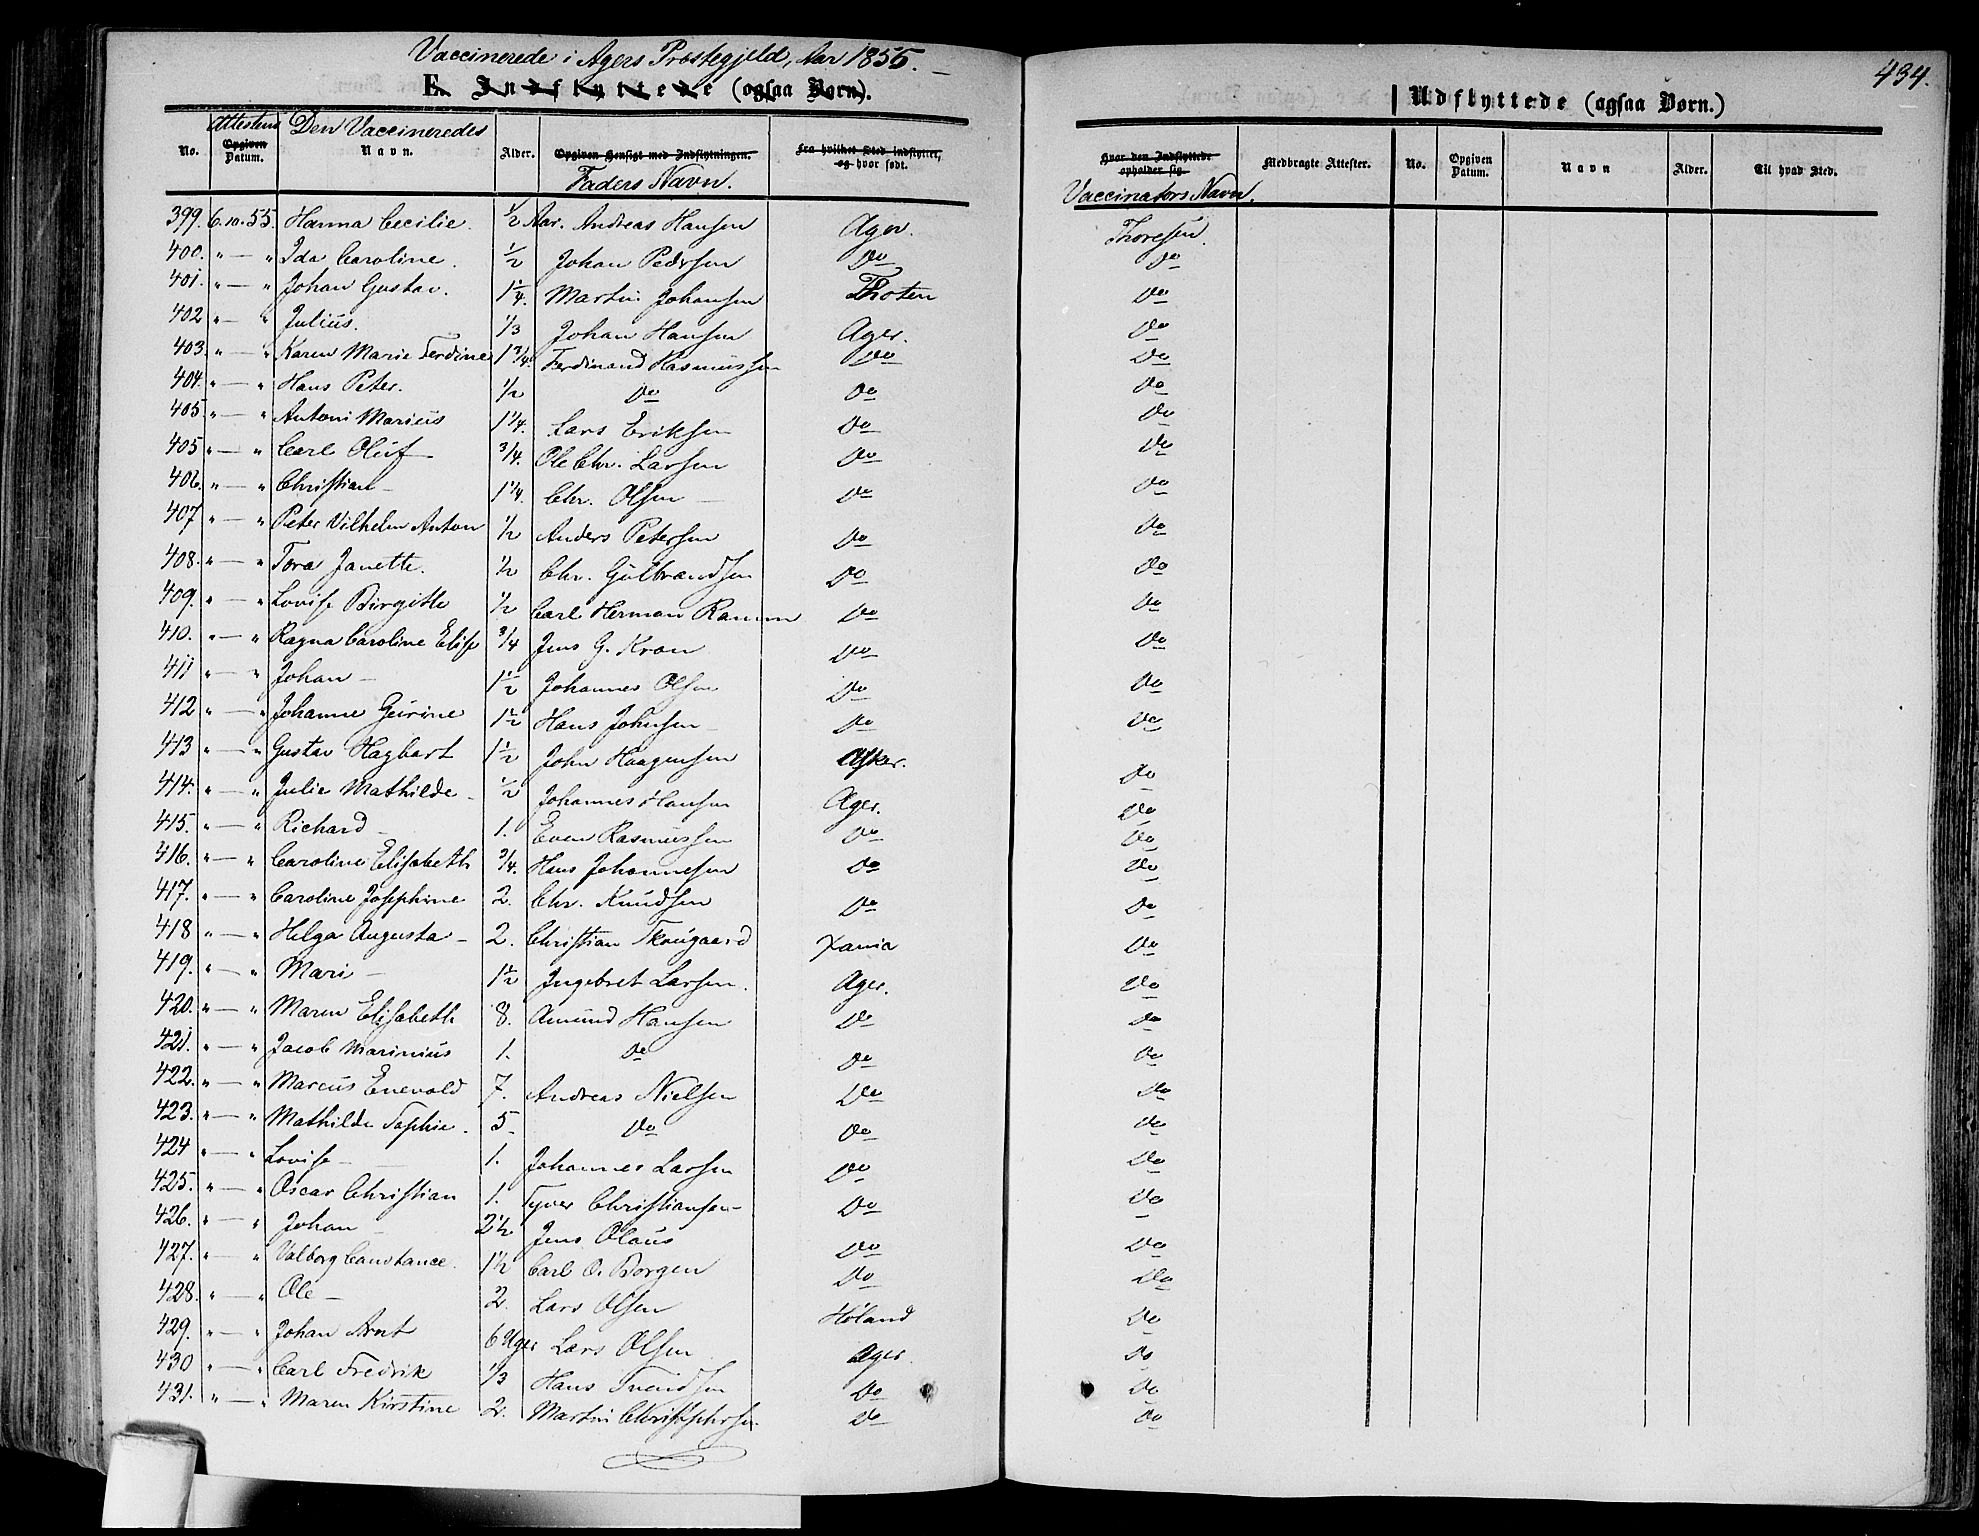 Vaccinerede i Agers Prestegjeld, Aar 1855.
E. Indflyttede (ogsaa Børn).
434.
Udflyttede (ogsaa Børn.)
No. Attestens Opgiven Datum. Den Vaccineredes Navn. Alder. Opgiven Hensigt med Indflytningen. Faders Navn. Fra hvilket Sted indflyttet, og hvor født. Hvor den Indflyttede opholder sig. Vaccinators Navn. Medbragte Attester. No. Opgiven Datum. Navn Alder. Til hvad Sted.
399. 6.10.55. Hanna Cecilie. 1/2 Aar. Andreas Hansen Ager. Thoresen.
400. " — " Ida Caroline. 1/2 Johan Pedersen Do Do
401. " — " Johan Gustav. 1 1/4. Martin Johansen Thoten Do
402 " — " Julius. 1/3 Johan Hansen Ager. Do
403. " — " Karen Marie Ferdine 1 3/4. Ferdinand Rasmussen Do Do
404. " — " Hans Peter. 1/2 Do Do Do
405. " — " Antoni Marius 1 1/4. Lars Eriksen Do Do
405 " — " Carl Oluf 3/4. Ole Chr. Larsen Do Do
406. " — " Christian 1 1/4. Chr. Olsen Do Do
407 " — " Peter Vilhelm Anton 1/2 Anders Petersen Do Do
408. " — " Tora Janette. 1/2 Chr. Gulbrandsen Do Do
409. " — " Lovise Birgitte 1/2 Carl Herman Ramm Do Do
410. " — " Ragna Caroline Elise 3/4 Jens G. Kron Do Do
411 " — " Johan 1 1/2 Johannes Olsen Do Do
412 " — " Johanne Gurine 1 1/2 Hans Johnsen Do Do
413 " — " Gustav Hagbart 1 1/2 John Haagensen Asker. Do
414. " — " Julie Mathilde 1/2 Johannes Hansen Ager. Do
415. " — " Richard 1. Even Rasmussen Do Do
416. " — " Caroline Elisabeth 3/4. Hans Johannesen Do Do
417. " — " Caroline Josephine 2. Chr. Knudsen Do Do
418 " — " Helga Augusta 2. Christian Skougaard Xania Do
419. " — " Mari 1 1/2 Ingebret Larsen. Ager. Do
420. " — " Maren Elisabeth 8. Amund Hansen Do Do
421. " — " Jacob Marinius 1. Do Do Do
422. " — " Marcus Enevold 7. Andreas Nielsen Do Do
423. " — " Mathilde Sophie. 5. Do Do Do
424 " — " Lovise 1. Johannes Larsen Do Do
425. " — " Oscar Christian 1. Syver Christiansen Do Do
426. " — " Johan 2 1/2 Jens Olaus Do Do
427. " — " Valborg Constance. 1 1/2 Carl O. Borgen Do Do
428. " — " Ole 2. Lars Olsen Høland Do
429. " — " Johan Arnt 6 Uger Lars Olsen Ager. Do
430 " — " Carl Fredrik 1/3 Hans Svendsen Do Do
431. " — " Maren Kirstine 2. Martin Christophersen. Do Do